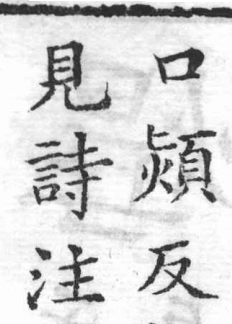 口熲反
見詩注